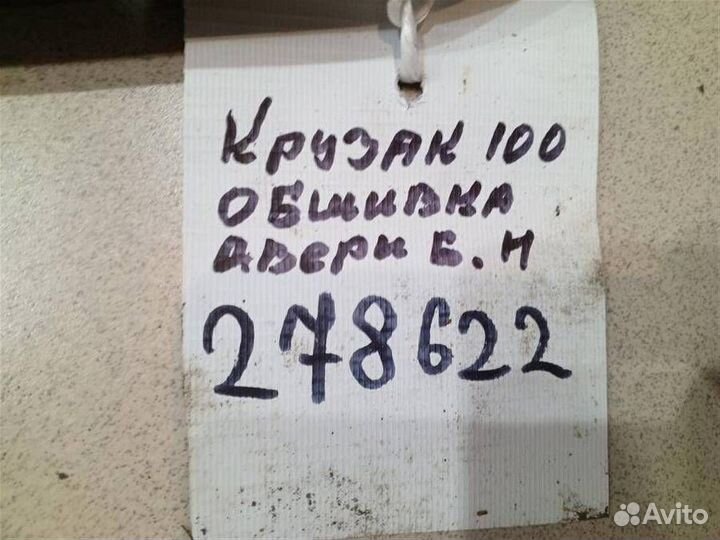 Крузак 100
обшивка
двери Б.Н
278622
Avito